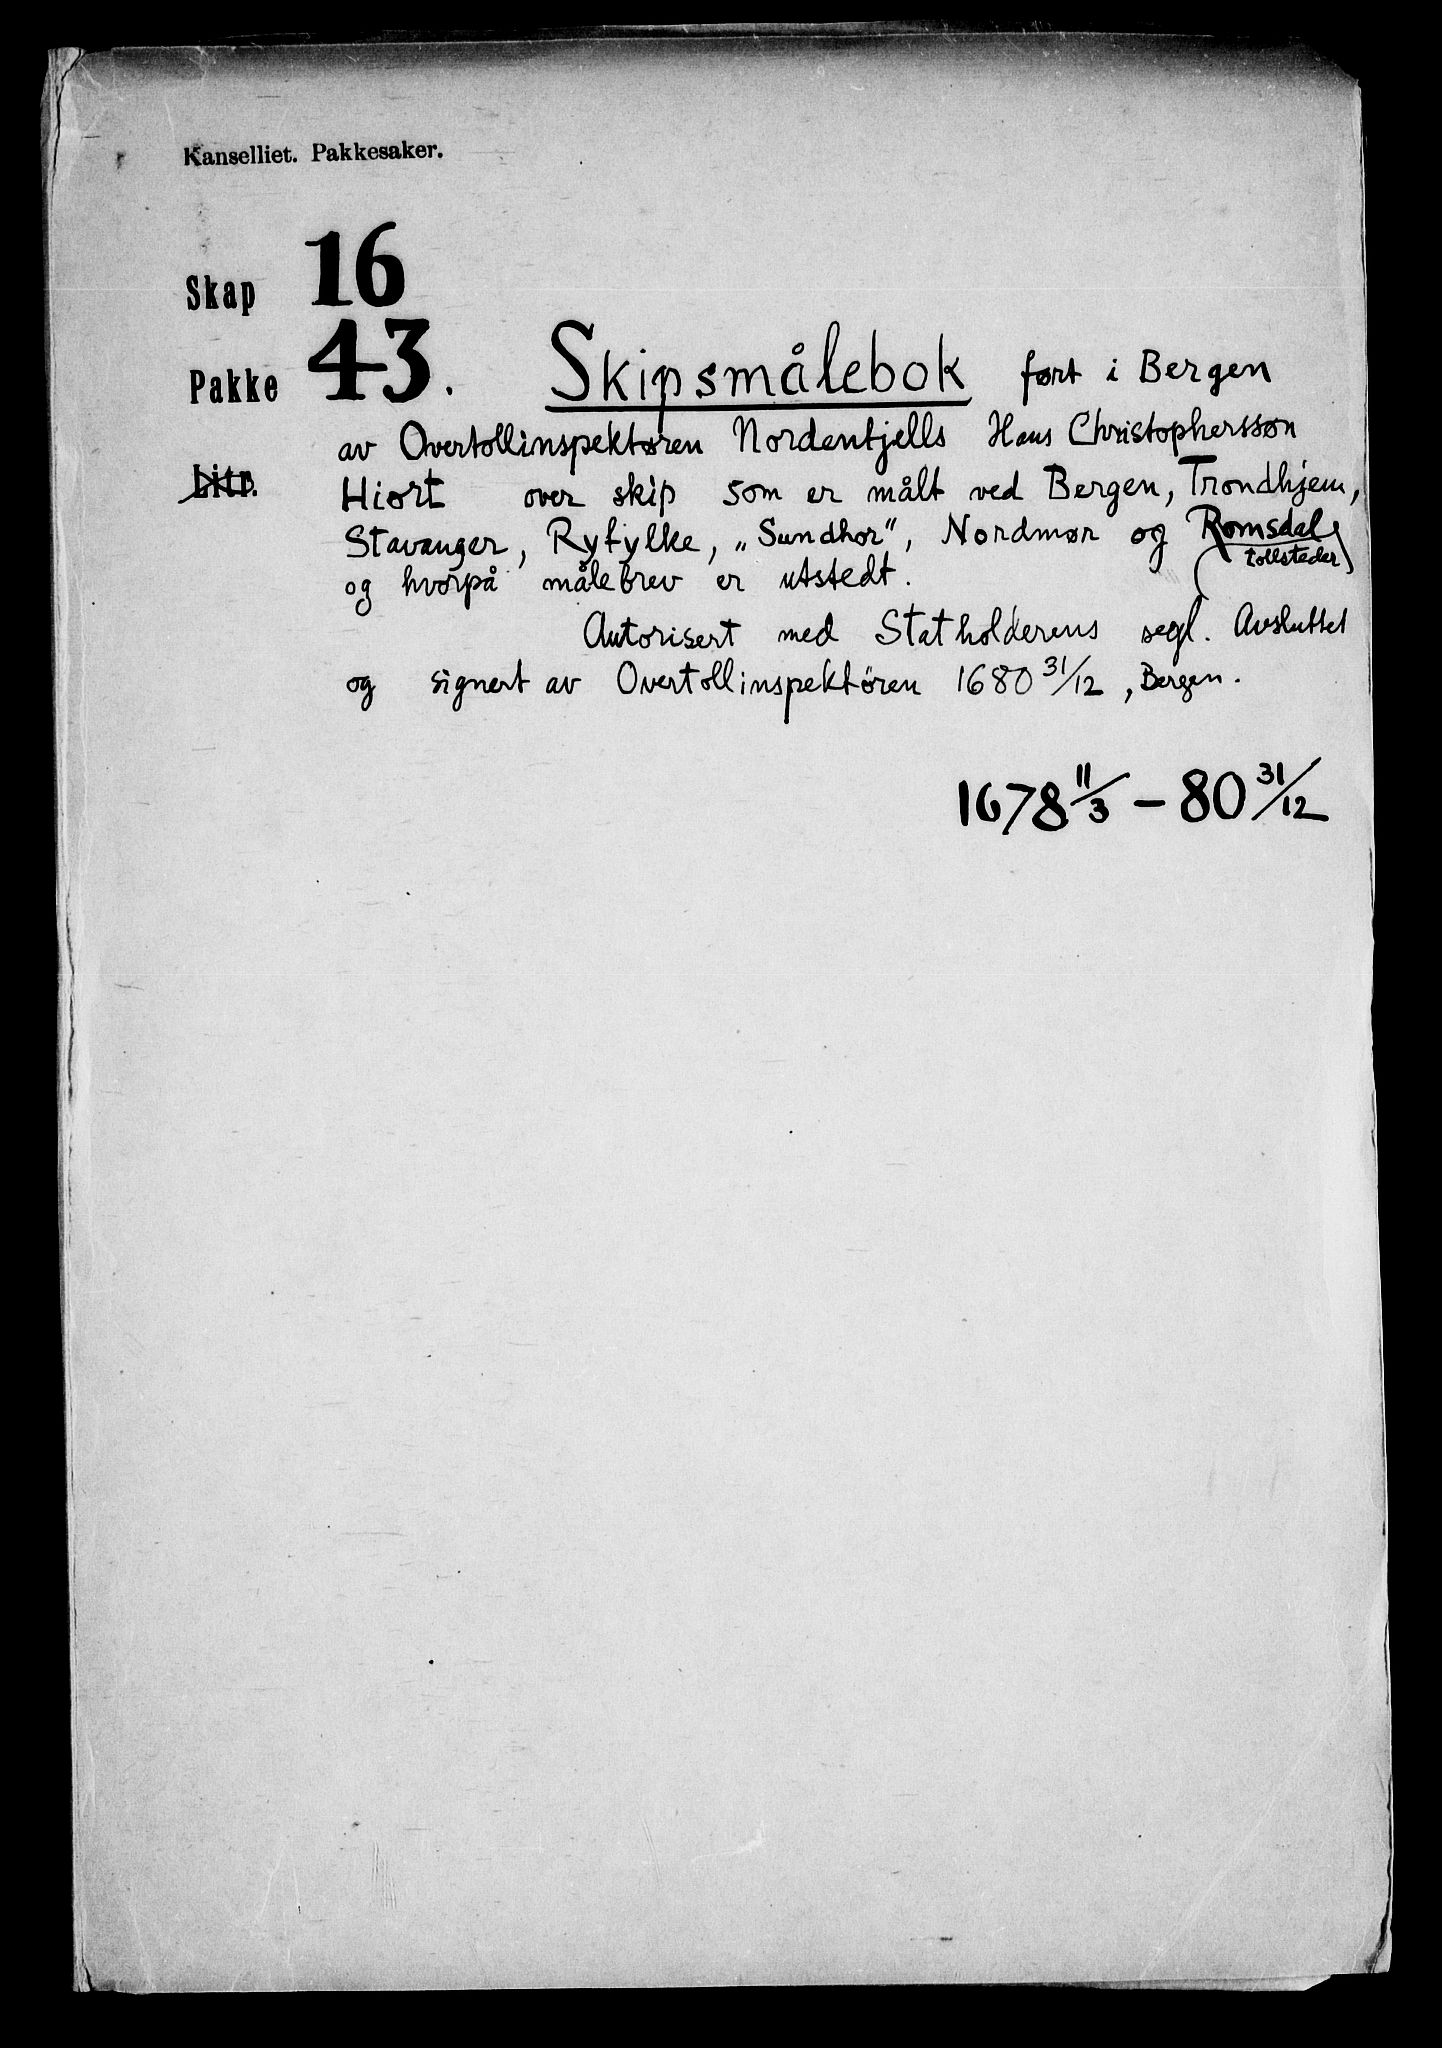 Kanselliet. Pakkesaker.
Skap 16
Pakke 43. Skipsmålebok ført i Bergen
av Overtollinspektøren Nordenfjells Hans Christopherssøn
Litr.
Hiort over skip som er målt ved Bergen, Trondhjem,
Stavanger, Ryfylke, „Sundhor", Nordmør og Romsdal
(tollsteder)
og hvorpå målebrev er utstedt.
Autorisert med Statholderens segl. Avsluttet
og signert av Overtollinspektören 1680 31/12, Bergen.
1678 11/3 – 80 31/12